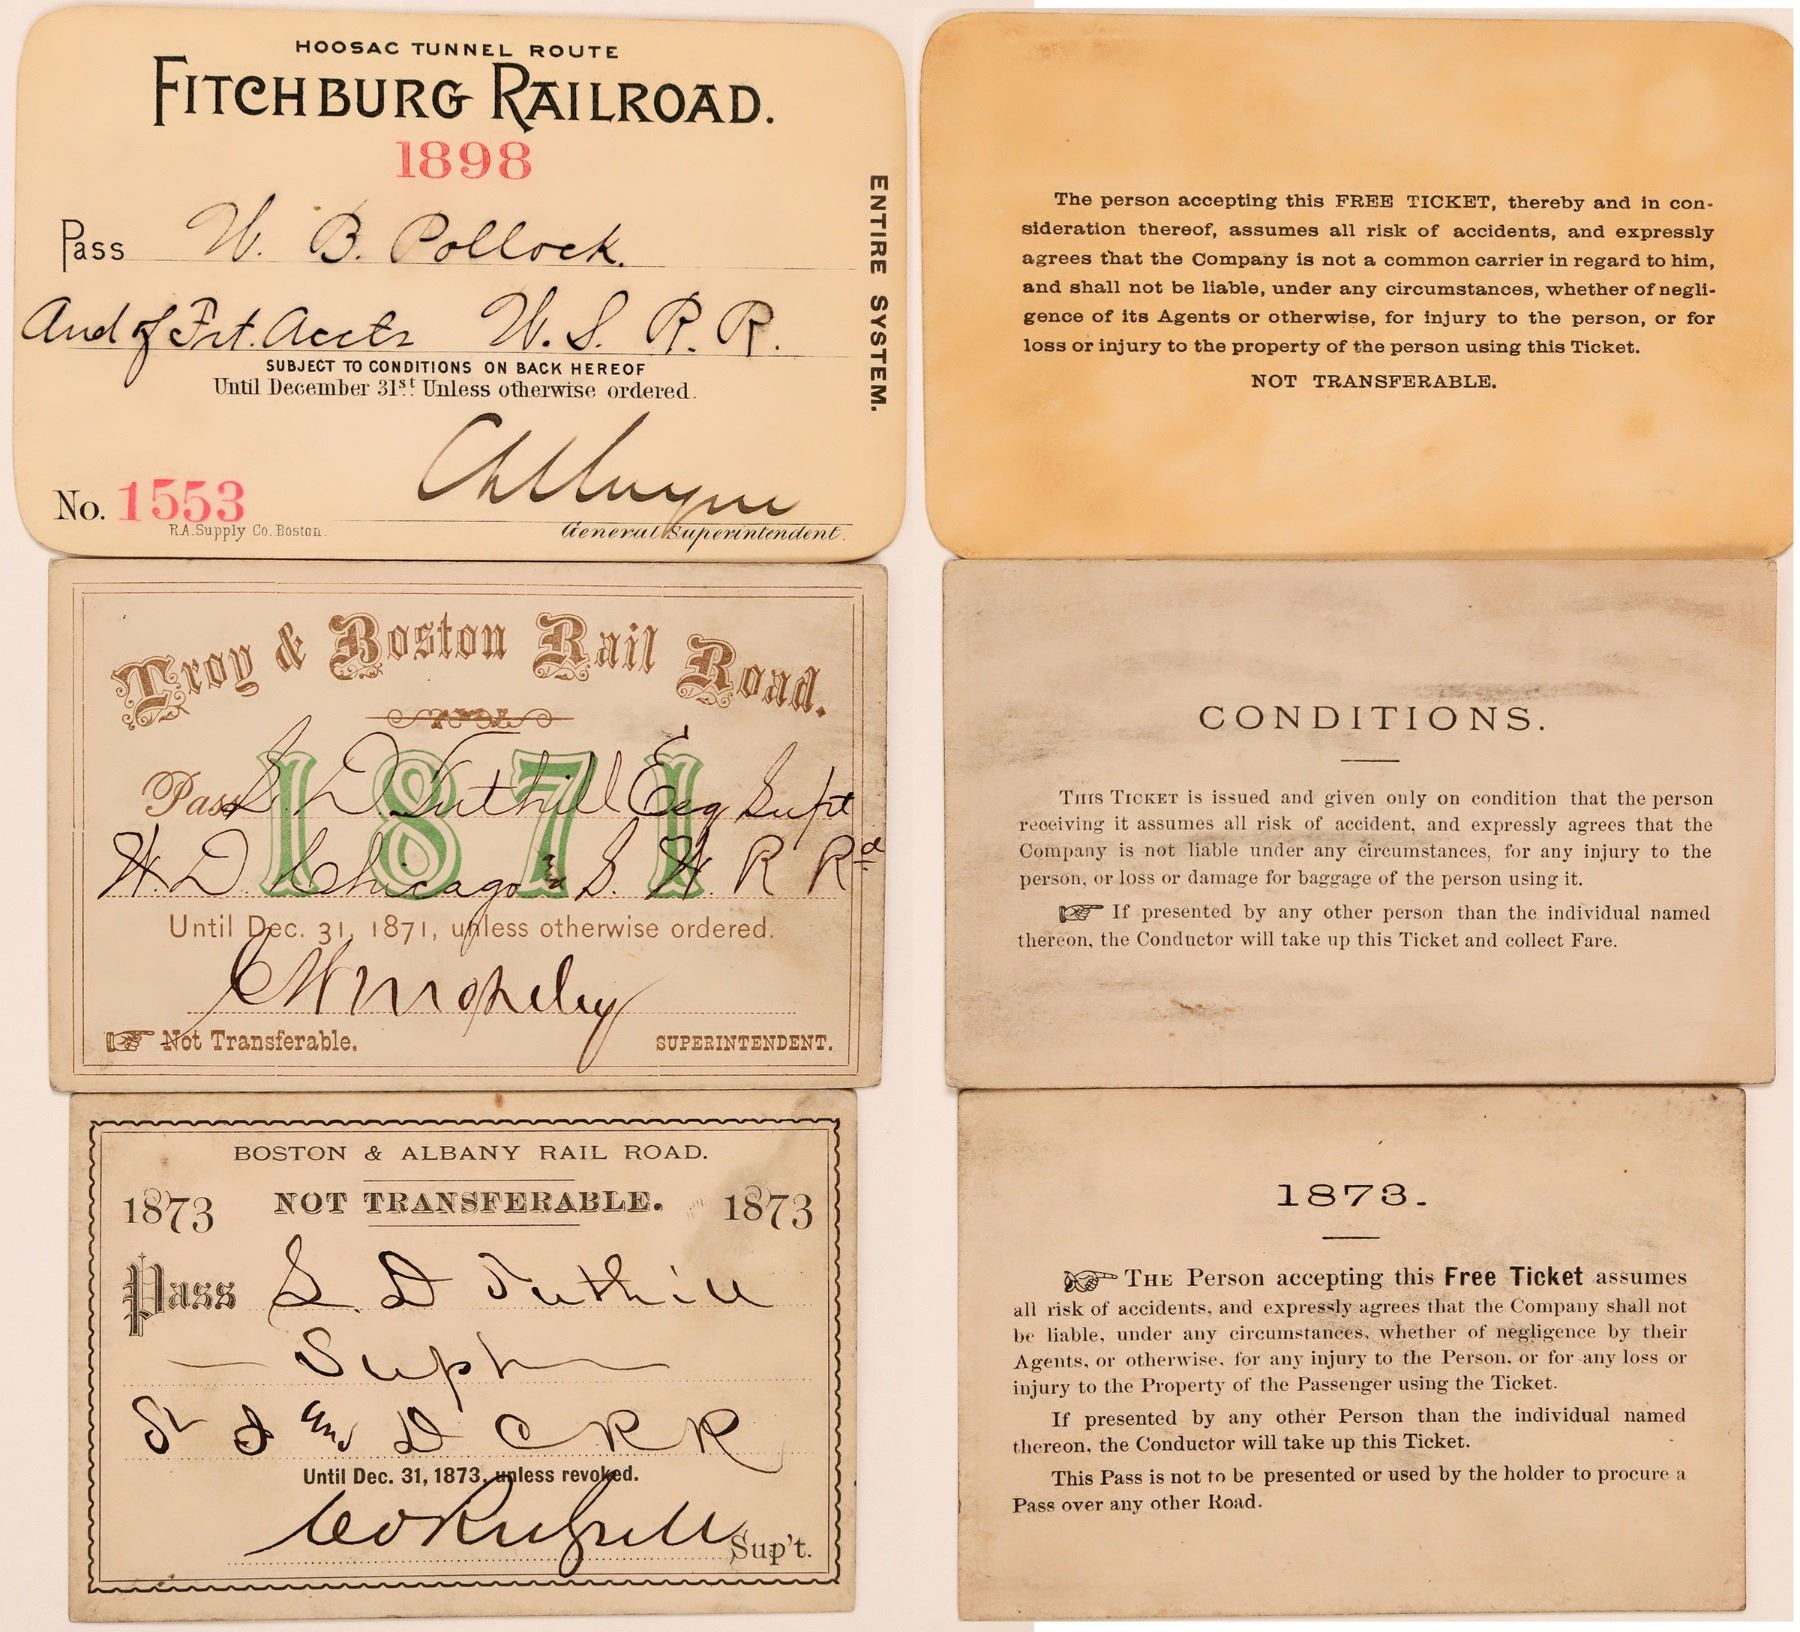 HOOSAC TUNNEL ROUTE
FITCHBURG RAILROAD.
1898
Pass W. B. Pollock.
Aud of Frt. Accts W. S. R. R.
SUBJECT TO CONDITIONS ON BACK HEREOF
Until December 31st Unless otherwise ordered.
ENTIRE SYSTEM.
No. 1553
R.A. Supply Co. Boston.
General Superintendent.
The person accepting this FREE TICKET, thereby and in con-
sideration thereof, assumes all risk of accidents, and expressly
agrees that the Company is not a common carrier in regard to him,
and shall not be liable, under any circumstances, whether of negli-
gence of its Agents or otherwise, for injury to the person, or for
loss or injury to the property of the person using this Ticket.
NOT TRANSFERABLE.
Troy & Boston Rail Road.
1871
Pass S. D Tuthill Esq Supt
W. D. Chicago & S. W. R Rd
Until Dec. 31, 1871, unless otherwise ordered.
Not Transferable.
SUPERINTENDENT.
CONDITIONS.
THIS TICKET is issued and given only on condition that the person
receiving it assumes all risk of accident, and expressly agrees that the
Company is not liable under any circumstances, for any injury to the
person, or loss or damage for baggage of the person using it.
☞ If presented by any other person than the individual named
thereon, the Conductor will take up this Ticket and collect Fare.
BOSTON & ALBANY RAIL ROAD.
1873 NOT TRANSFERABLE. 1873
Pass S. D Tuthill
Supt
D C R R
Until Dec. 31, 1873, unless revoked.
Sup't.
1873.
☞ THE Person accepting this Free Ticket assumes
all risk of accidents, and expressly agrees that the Company shall not
be liable, under any circumstances, whether of negligence by their
Agents, or otherwise, for any injury to the Person, or for any loss or
injury to the Property of the Passenger using the Ticket.
If presented by any other Person than the individual named
thereon, the Conductor will take up this Ticket.
This Pass is not to be presented or used by the holder to procure a
Pass over any other Road.